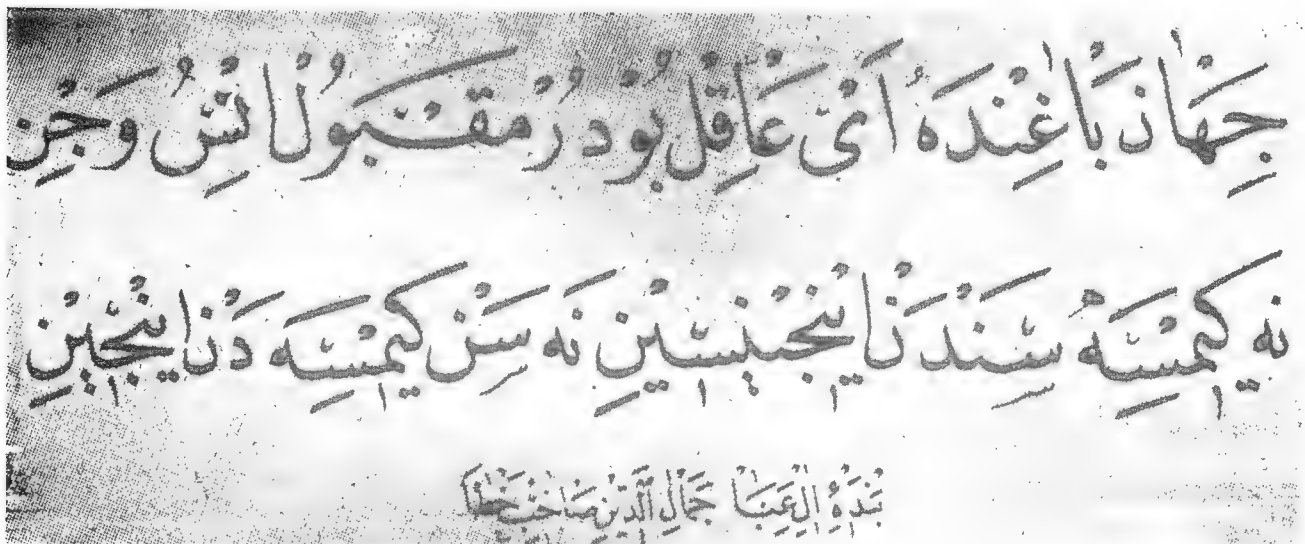 جِهَان بَاغِنْدَه اَىْ عَاقِلْ بُودُرْ مَقْبُولِ اِنْسُ وَجِنْ
نه كيمْسَه سَنْدَنْ اينْجِنْسِينْ نَه سَنْ كيمْسَه دَنْ اينْجِينْ
بَنْدَۀ اٰلِ عَبَا جَمَالُ الدِّين